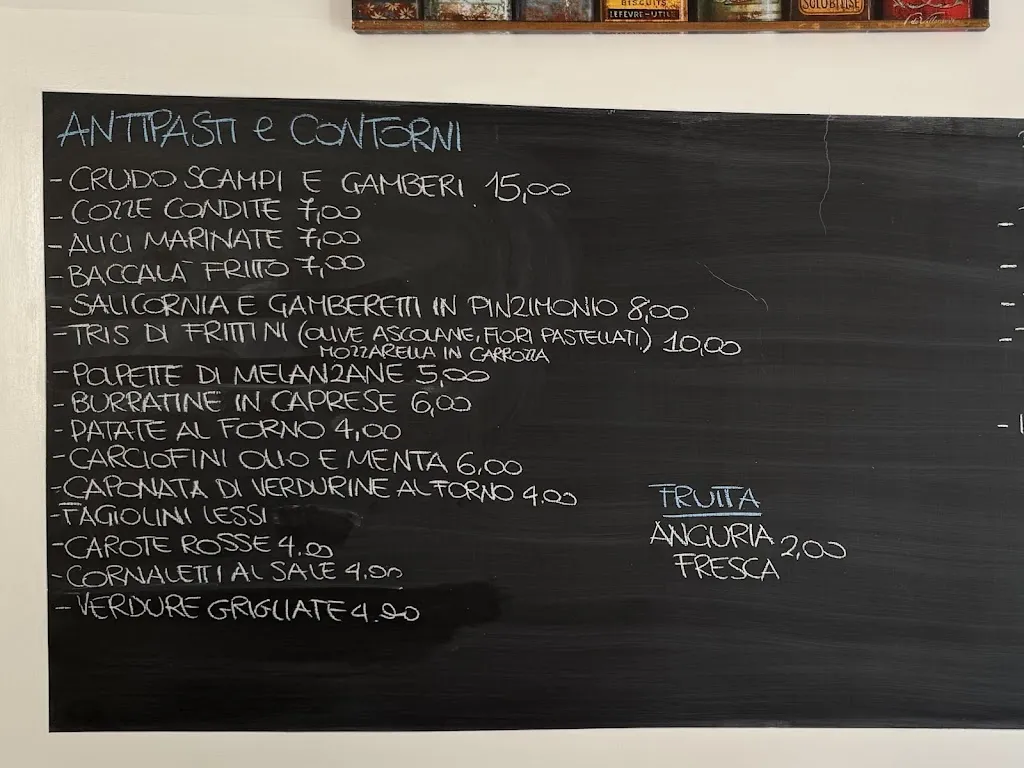 BISCUITS
LEFEVRE-UTILE
SOLUBILISE
ANTIPASTI e CONTORNI
- CRUDO SCAMPI E GAMBERI 15,00
- COZZE CONDITE 7,00
- ALICI MARINATE 7,00
- BACCALA' FRITTO 7,00
- SALICORNIA E GAMBERETTI IN PINZIMONIO 8,00
- TRIS DI FRITTINI (OLIVE ASCOLANE, FIORI PASTELLATI) 10,00
MOZZARELLA IN CARROZZA
- POLPETTE DI MELANZANE 5,00
- BURRATINE IN CAPRESE 6,00
- PATATE AL FORNO 4,00
- CARCIOFINI OLIO E MENTA 6,00
- CAPONATA DI VERDURINE AL FORNO 4.00
- FAGIOLINI LESSI
- CAROTE ROSSE 4.00
- CORNALETTI AL SALE 4,00
- VERDURE GRIGLIATE 4.00
FRUTTA
ANGURIA 2,00
FRESCA